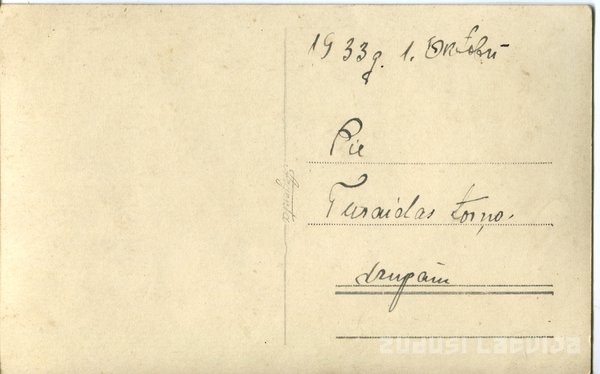 1933g. 1. Oktobrī
Pie
Turaidas torņa
drupām
zudusī Latvija